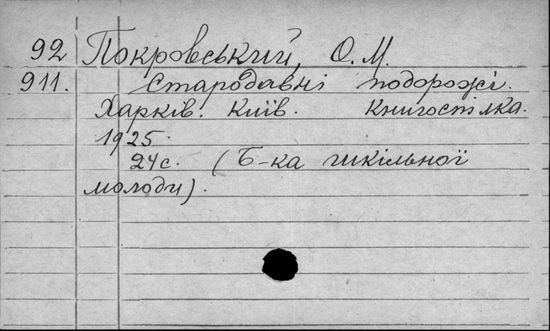 92 Покровський, О. М.
911. Стародавні подорожі.
Харків. Київ. Книгоспілка.
1925.
24 с. (Б-ка шкільної
молоди).